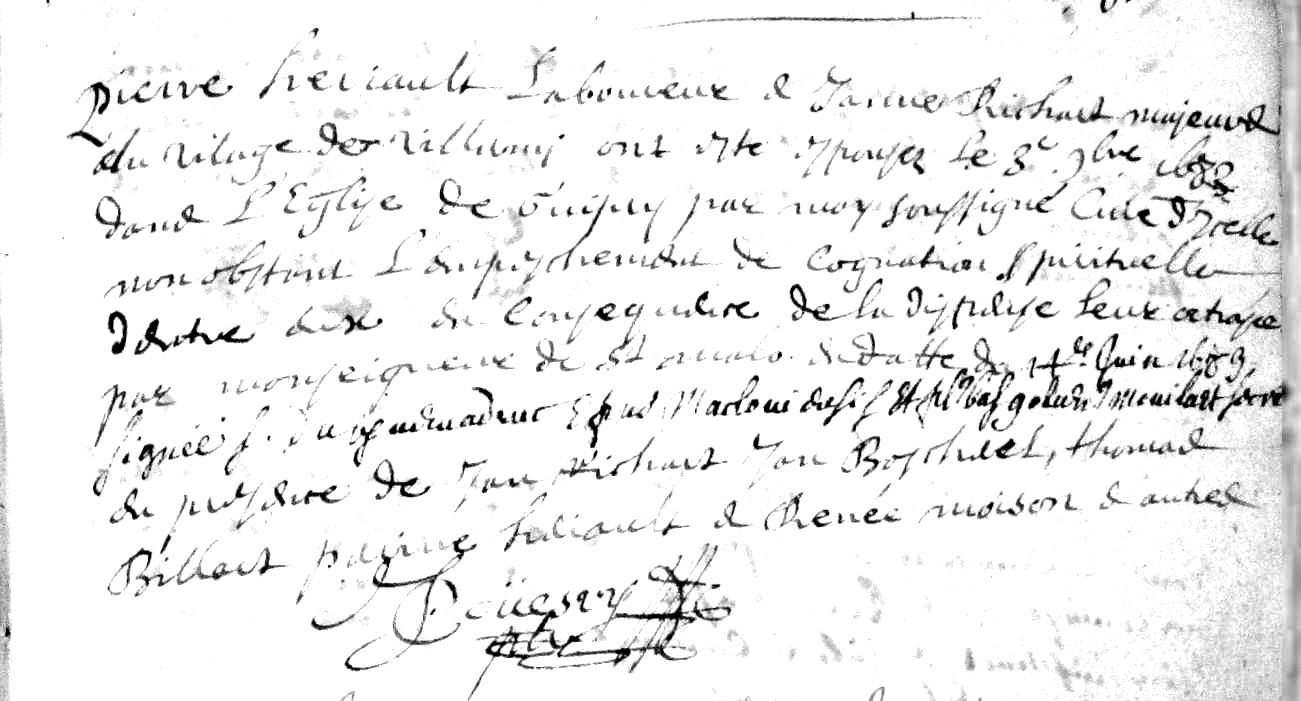 Pierre heriault Laboureur & Janne Richart majeurs
du vilage des villums ont este epousez Le 3e 9bre 1683
dans L'Eglise de Guguen par moy soussigné Curé d'Icelle
nonobstant L'empeschement de Cognation spirituelle
d'entre eux en consequence de la dispense Leur octroyée
par monseigneur de St malo en datte du 14e Juin 1683
signée f. du Epus Maclouiensis &
en presence de Jan Richart Jan Boschael, thomas
Billart perrine heriault & Renée moison & autres